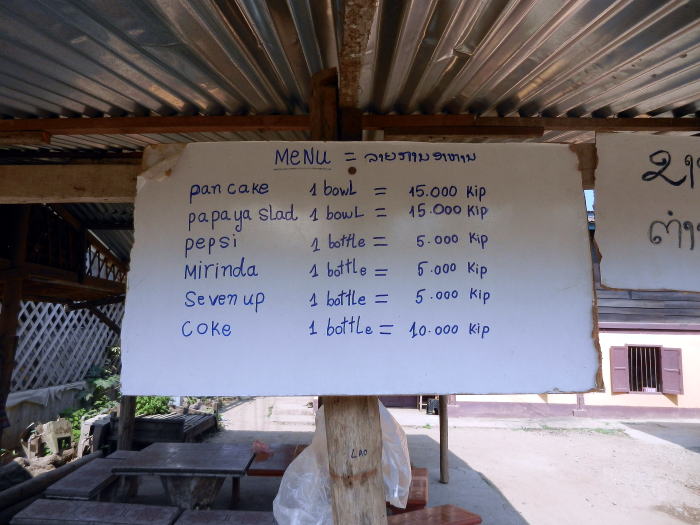 MeNU = ລາຍການອາຫານ
pan cake 1 bowl = 15.000 Kip
papaya slad 1 bowl = 15.000 Kip
pepsi 1 bottle = 5.000 Kip
Mirinda 1 bottle = 5.000 Kip
Seven up 1 bottle = 5.000 Kip
Coke 1 bottle = 10.000 Kip
LAO